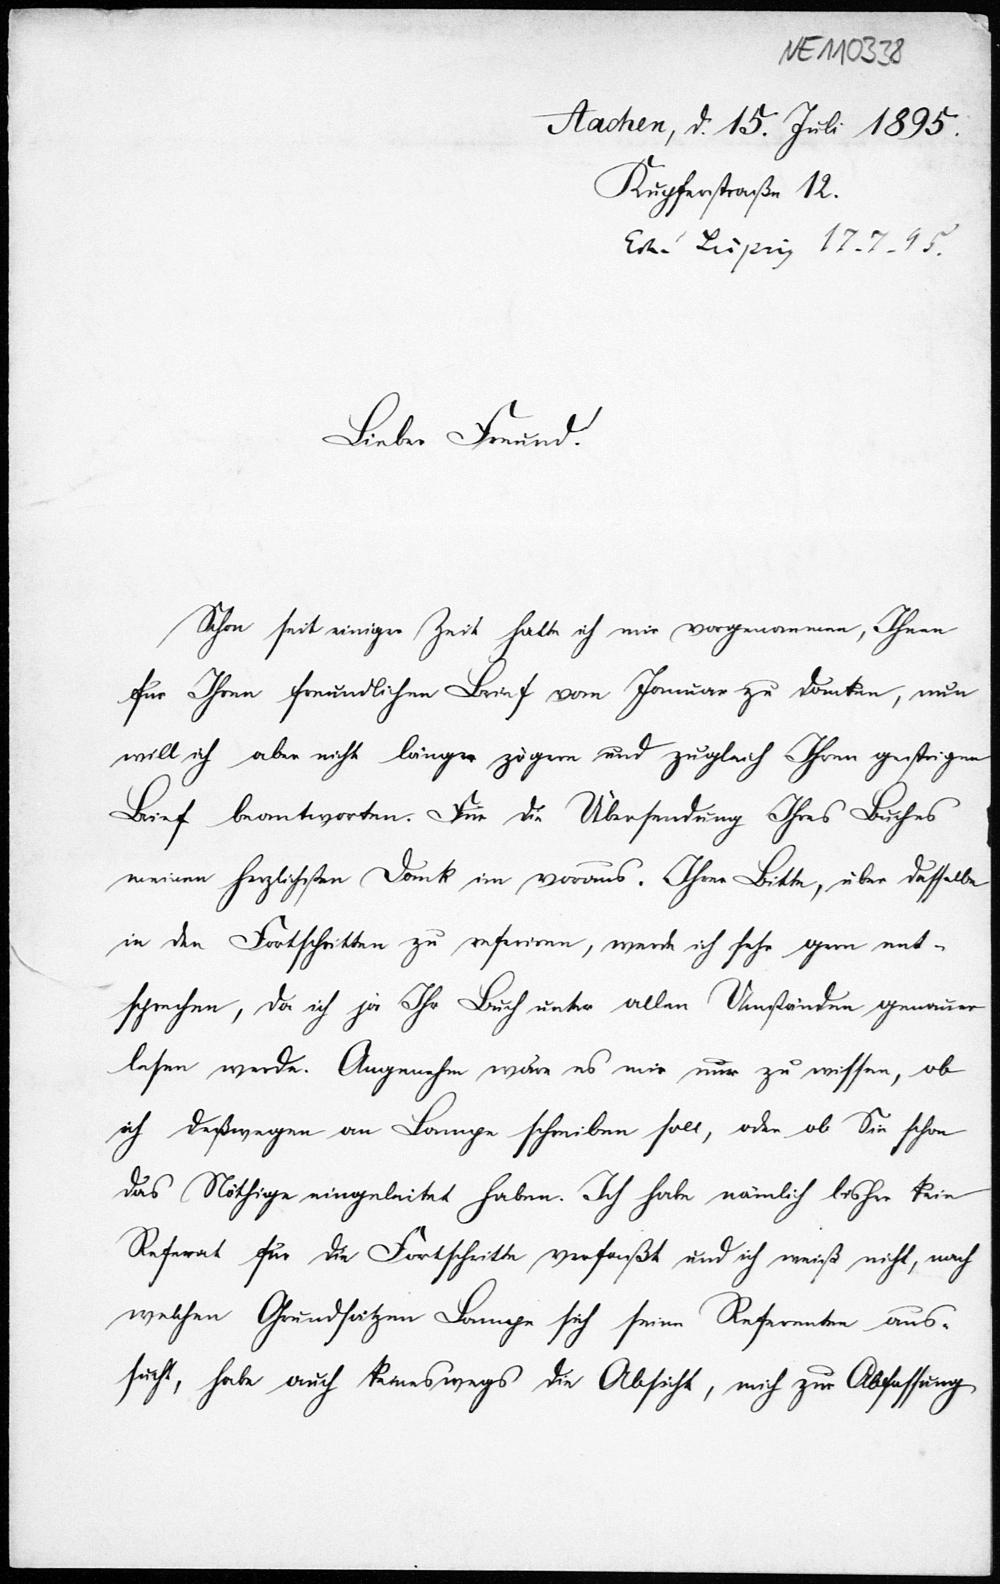 NE110338
Aachen, d. 15. Juli 1895.
Kupferstraße 12.
Leipzig 17.7.95.
Lieber Freund!
Schon seit einiger Zeit hatte ich mir vorgenommen, Ihnen
für Ihren freundlichen Brief vom Januar zu danken, nun
will ich aber nicht länger zögern und zugleich Ihren gestrigen
Brief beantworten. Für die Übersendung Ihres Buches
meinen herzlichsten Dank im voraus. Ihrer Bitte, über dasselbe
in den Fortschritten zu referiren, werde ich sehr gern ent-
sprechen, da ich ja Ihr Buch unter allen Umständen genauer
lesen werde. Angenehm wäre es mir nur zu wissen, ob
ich deßwegen an Lampe schreiben soll, oder ob Sie schon
das Nöthige eingeleitet haben. Ich habe nämlich bisher kein
Referat für die Fortschritte verfaßt und ich weiß nicht, nach
welchen Grundsätzen Lampe sich seine Referenten aus-
sucht, habe auch keineswegs die Absicht, mich zur Abfassung